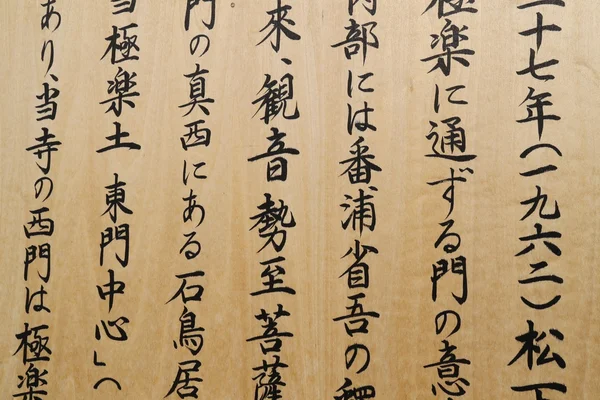 三十七年(一九六二)松下
極楽に通ずる門の意
内部には番浦省吾の釈
来、観音勢至菩薩
門の真西にある石鳥居
当極楽土 東門中心」へ
あり、当寺の西門は極楽